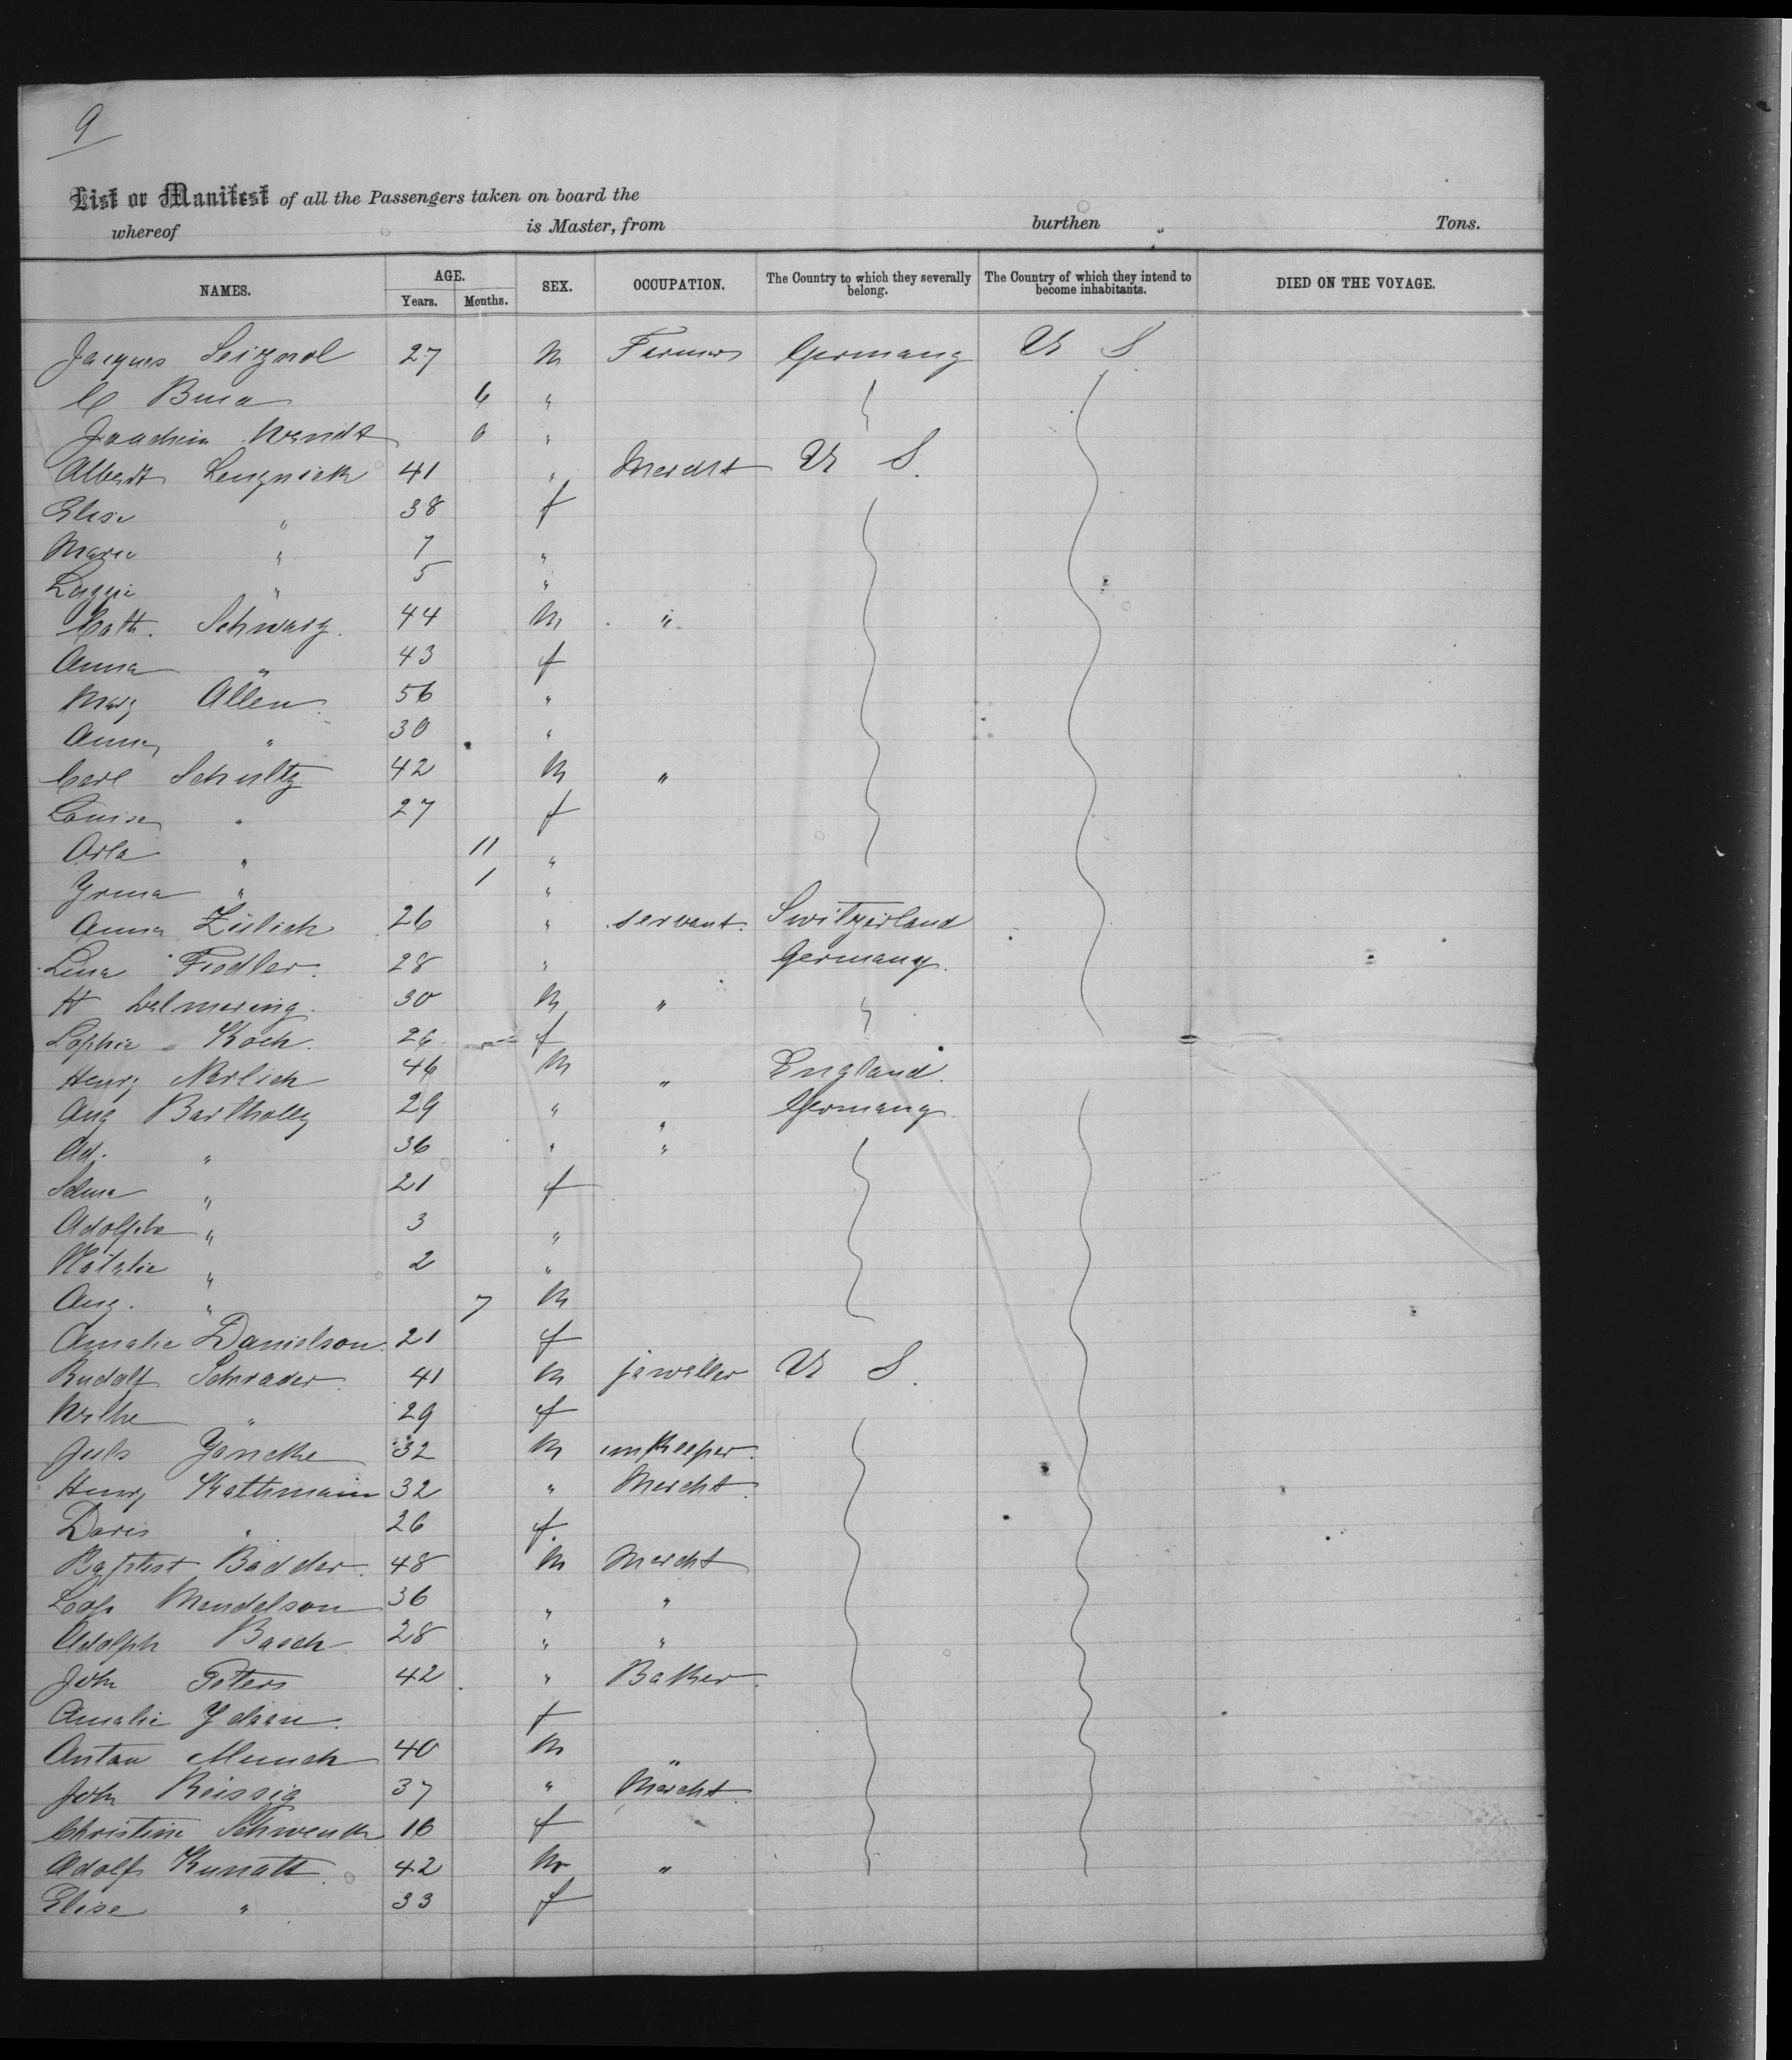 9
List or Manifest of all the Passengers taken on board the
whereof is Master, from burthen Tons.
NAMES. AGE. Years. Months. SEX. OCCUPATION. The Country to which they severally belong. The Country of which they intend to become inhabitants. DIED ON THE VOYAGE.
Jacques Seignol 27 M Farmer Germany U S
C 6 "
Joachim Wendt 6 "
Albert Lengnick 41 " Mercht U S.
Elise " 38 f
Marie " 7 "
" 5 "
Cath. Schwarz. 44 M "
Anna " 43 f
Mary Allen. 56 "
Anna " 30 "
Carl Schultz 42 M "
Louise " 27 f
" 11 "
Yrma " 1 "
Anna Zülich 26 " servant. Switzerland
Lina Fiedler. 28 " Germany.
H 30 M "
Sophie Koch. 26 f
Henry Nerlich 46 M " England.
Aug Bartholly 29 " " Germany.
Ad. " 36 " "
Selma " 21 f
Adolphe " 3 "
Natalie " 2 "
Aug. " 7 M
Amalie Danielson. 21 f
Rudolf Schrader. 41 M jeweller U S.
Wilhe " 29 f
Juls Jancke 32 M innkeeper.
Henry Kathmann 32 " Mercht.
Doris " 26 f.
Baptist Badder. 48 M Mercht
Mendelson 36 " "
Adolph Basch 28 " "
John Peters 42 " Baker.
Amalie f
Anton Munch 40 M "
John Reissig 37 " Mercht.
Christine Schwenk 16 f
Adolf Kunatt. 42 M "
Elise " 33 f